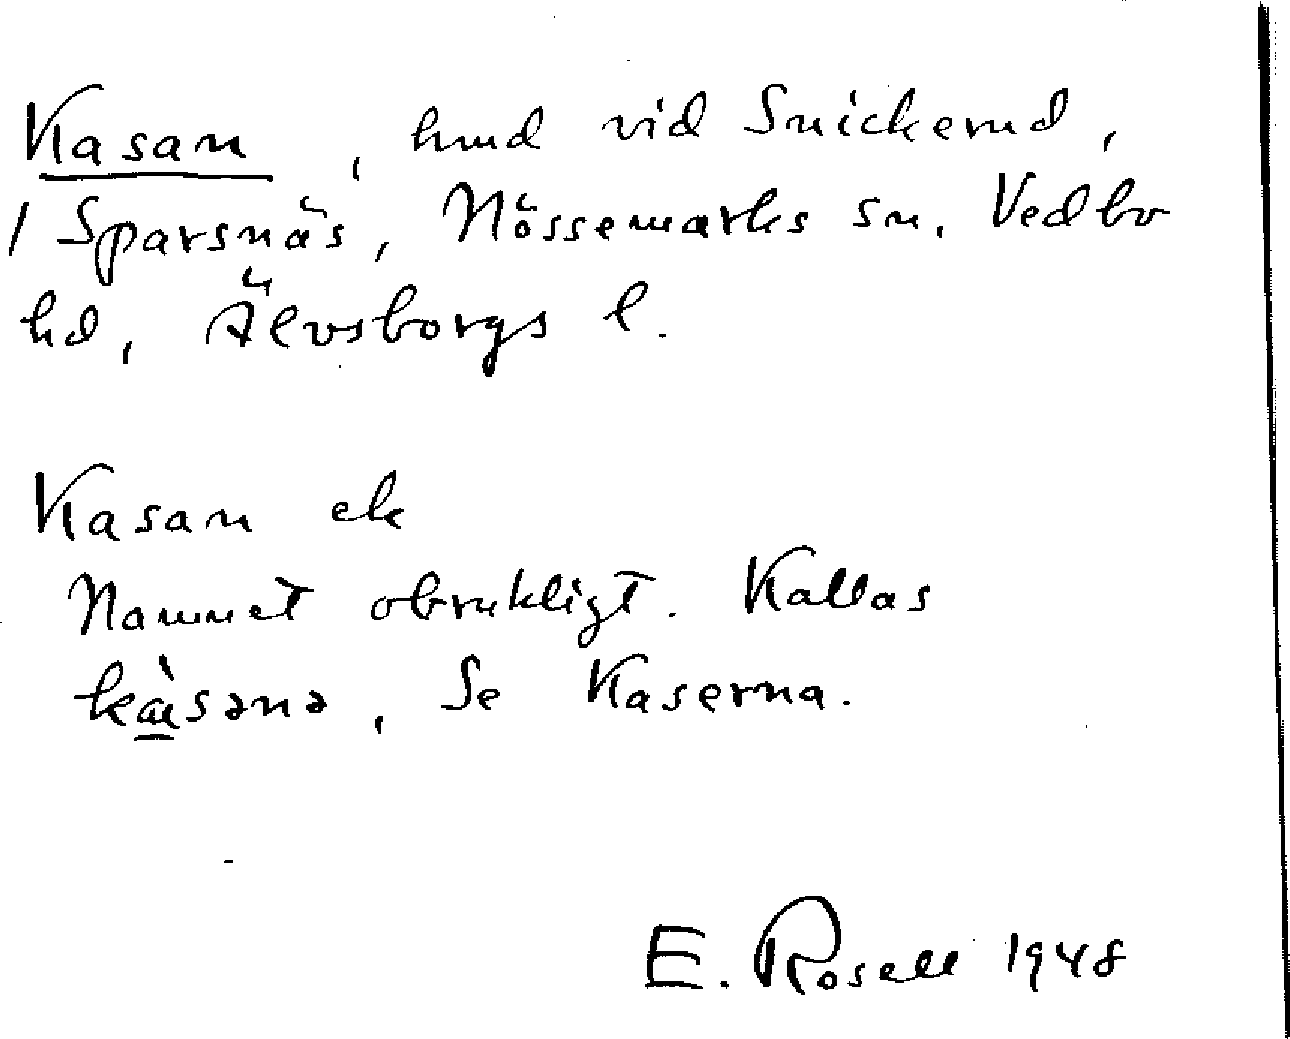 Kasan, lund vid Snickerud,
1 Sparsnäs, Nössemarks sn. Vedbo
hd, Älvsborgs l.
Kasan ek
Namnet obrukligt. Kallas
kàsənə, Se Kaserna.
E. Rosell 1948